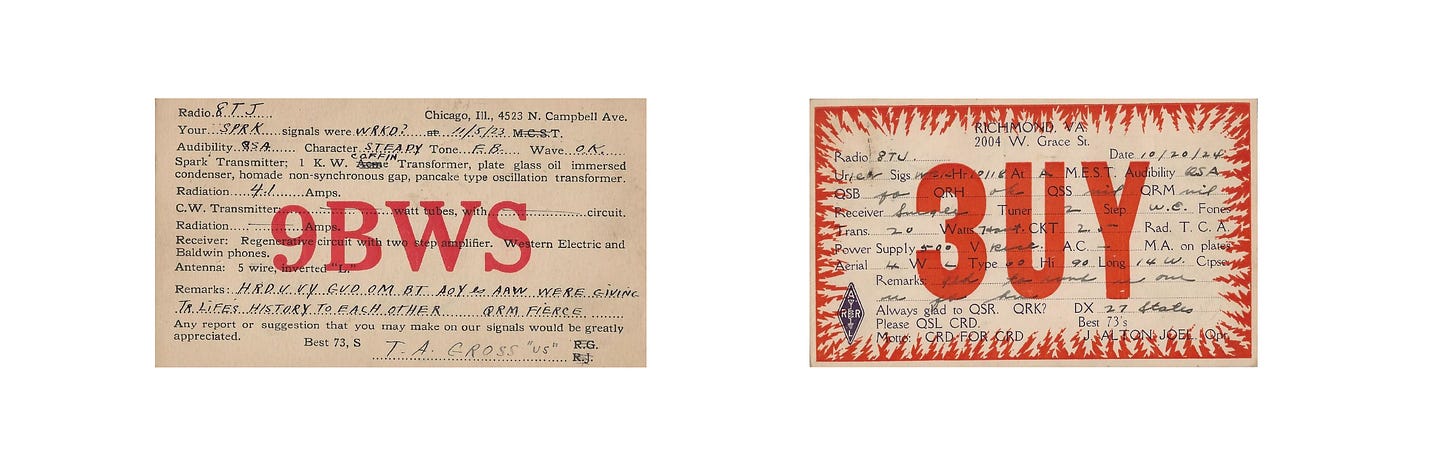 Radio 8TJ
Chicago, Ill., 4523 N. Campbell Ave.
Your SPRK signals were WRKD? at 11/5/23 M.C.S.T.
Audibility QSA Character STEADY Tone F.B. Wave O.K.
COFFIN
Spark Transmitter: 1 K.W. Acme Transformer, plate glass oil immersed
condenser, homade non-synchronous gap, pancake type oscillation transformer.
Radiation 4.1 Amps.
C.W. Transmitter: watt tubes, with circuit.
Radiation Amps.
9BWS
Receiver: Regenerative circuit with two step amplifier. Western Electric and
Baldwin phones.
Antenna: 5 wire, inverted "L."
Remarks: H.R.D. U. V.Y. GUD OM BT AOY es AAW WERE GIVING
TR LIFES HISTORY TO EACH OTHER QRM FIERCE
Any report or suggestion that you may make on our signals would be greatly
appreciated.
Best 73, S
T. A. GROSS "US"
R.G.
R.J.
RICHMOND, VA
2004 W. Grace St.
Radio 8TJ Date 10/20/24
Ur Sigs Hr At M.E.S.T. Audibility QSA
QSB QRH ok QSS nil QRM nil
Receiver Tuner 2 Step W.E. Fones
3UY
Trans. 20 Watts CKT Rad. T. C. A.
Power Supply 500 V A.C. – M.A. on plates
Aerial 4 W Type 60 Hi 90 Long 14 W. Cipse
Remarks:
Always glad to QSR. QRK? DX 27 States
Please QSL CRD. Best 73's
Motto: CRD FOR CRD J. ALTON JOEL, Opr.
ARRL